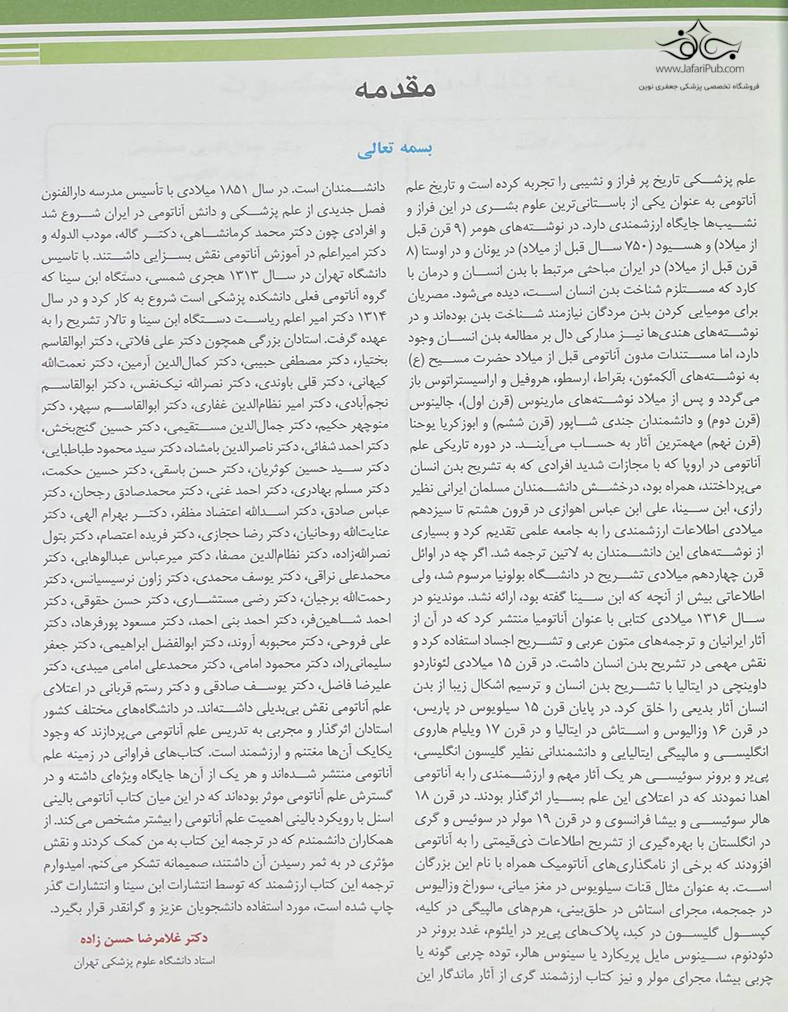 www.JafariPub.com
فروشگاه تخصصی پزشکی جعفری نوین
مقدمه
بسمه تعالی
علم پزشکی تاریخ پر فراز و نشیبی را تجربه کرده است و تاریخ علم
آناتومی به عنوان یکی از باستانی‌ترین علوم بشری در این فراز و
نشیب‌ها جایگاه ارزشمندی دارد. در نوشته‌های هومر (۹ قرن قبل
از میلاد) و هسیود (۷۵۰ سال قبل از میلاد) در یونان و در اوستا (۸
قرن قبل از میلاد) در ایران مباحثی مرتبط با بدن انسان و درمان با
کارد که مستلزم شناخت بدن انسان است، دیده می‌شود. مصریان
برای مومیایی کردن بدن مردگان نیازمند شناخت بدن بوده‌اند و در
نوشته‌های هندی‌ها نیز مدارکی دال بر مطالعه بدن انسان وجود
دارد، اما مستندات مدون آناتومی قبل از میلاد حضرت مسیح (ع)
به نوشته‌های آلکمئون، بقراط، ارسطو، هروفیل و اراسیستراتوس باز
می‌گردد و پس از میلاد نوشته‌های مارینوس (قرن اول)، جالینوس
(قرن دوم) و دانشمندان جندی شاپور (قرن ششم) و ابوزکریا یوحنا
(قرن نهم) مهمترین آثار به حساب می‌آیند. در دوره تاریکی علم
آناتومی در اروپا که با مجازات شدید افرادی که به تشریح بدن انسان
می‌پرداختند، همراه بود، درخشش دانشمندان مسلمان ایرانی نظیر
رازی، ابن سینا، علی ابن عباس اهوازی در قرون هشتم تا سیزدهم
میلادی اطلاعات ارزشمندی را به جامعه علمی تقدیم کرد و بسیاری
از نوشته‌های این دانشمندان به لاتین ترجمه شد. اگر چه در اوائل
قرن چهاردهم میلادی تشریح در دانشگاه بولونیا مرسوم شد، ولی
اطلاعاتی بیش از آنچه که ابن سینا گفته بود، ارائه نشد. موندینو در
سال ۱۳۱۶ میلادی کتابی با عنوان آناتومیا منتشر کرد که در آن از
آثار ایرانیان و ترجمه‌های متون عربی و تشریح اجساد استفاده کرد و
نقش مهمی در تشریح بدن انسان داشت. در قرن ۱۵ میلادی لئوناردو
داوینچی در ایتالیا با تشریح بدن انسان و ترسیم اشکال زیبا از بدن
انسان آثار بدیعی را خلق کرد. در پایان قرن ۱۵ سیلویوس در پاریس،
در قرن ۱۶ وزالیوس و استاش در ایتالیا و در قرن ۱۷ ویلیام هاروی
انگلیسی و مالپیگی ایتالیایی و دانشمندانی نظیر گلیسون انگلیسی،
پی‌یر و برونر سوئیسی هر یک آثار مهم و ارزشمندی را به آناتومی
اهدا نمودند که در اعتلای این علم بسیار اثرگذار بودند. در قرن ۱۸
هالر سوئیسی و بیشا فرانسوی و در قرن ۱۹ مولر در سوئیس و گری
در انگلستان با بهره‌گیری از تشریح اطلاعات ذی‌قیمتی را به آناتومی
افزودند که برخی از نامگذاری‌های آناتومیک همراه با نام این بزرگان
است. به عنوان مثال قنات سیلویوس در مغز میانی، سوراخ وزالیوس
در جمجمه، مجرای استاش در حلق‌بینی، هرم‌های مالپیگی در کلیه،
کپسول گلیسون در کبد، پلاک‌های پی‌یر در ایلئوم، غدد برونر در
دئودنوم، سینوس مایل پریکارد یا سینوس هالر، توده چربی گونه یا
چربی بیشا، مجرای مولر و نیز کتاب ارزشمند گری از آثار ماندگار این
دانشمندان است. در سال ۱۸۵۱ میلادی با تأسیس مدرسه دارالفنون
فصل جدیدی از علم پزشکی و دانش آناتومی در ایران شروع شد
و افرادی چون دکتر محمد کرمانشاهی، دکتر گاله، مودب الدوله و
دکتر امیراعلم در آموزش آناتومی نقش بسزایی داشتند. با تاسیس
دانشگاه تهران در سال ۱۳۱۳ هجری شمسی، دستگاه ابن سینا که
گروه آناتومی فعلی دانشکده پزشکی است شروع به کار کرد و در سال
۱۳۱۴ دکتر امیر اعلم ریاست دستگاه ابن سینا و تالار تشریح را به
عهده گرفت. استادان بزرگی همچون دکتر علی فلاتی، دکتر ابوالقاسم
بختیار، دکتر مصطفی حبیبی، دکتر کمال‌الدین آرمین، دکتر نعمت‌الله
کیهانی، دکتر قلی باوندی، دکتر نصرالله نیک‌نفس، دکتر ابوالقاسم
نجم‌آبادی، دکتر امیر نظام‌الدین غفاری، دکتر ابوالقاسم سپهر، دکتر
منوچهر حکیم، دکتر جمال‌الدین مستقیمی، دکتر حسین گنج‌بخش،
دکتر احمد شفائی، دکتر ناصرالدین بامشاد، دکتر سید محمود طباطبایی،
دکتر سید حسین کوثریان، دکتر حسن باسقی، دکتر حسین حکمت،
دکتر مسلم بهادری، دکتر احمد غنی، دکتر محمدصادق رجحان، دکتر
عباس صادق، دکتر اسدالله اعتضاد مظفر، دکتر بهرام الهی، دکتر
عنایت‌الله روحانیان، دکتر رضا حجازی، دکتر فریده اعتصام، دکتر بتول
نصرالله‌زاده، دکتر نظام‌الدین مصفا، دکتر میرعباس عبدالوهابی، دکتر
محمدعلی نراقی، دکتر یوسف محمدی، دکتر زاون نرسیسیانس، دکتر
رحمت‌الله برجیان، دکتر رضی مستشاری، دکتر حسن حقوقی، دکتر
احمد شاهین‌فر، دکتر احمد بنی احمد، دکتر مسعود پورفرهاد، دکتر
علی فروحی، دکتر محبوبه آروند، دکتر ابوالفضل ابراهیمی، دکتر جعفر
سلیمانی‌راد، دکتر محمود امامی، دکتر محمدعلی امامی میبدی، دکتر
علیرضا فاضل، دکتر یوسف صادقی و دکتر رستم قربانی در اعتلای
علم آناتومی نقش بی‌بدیلی داشته‌اند. در دانشگاه‌های مختلف کشور
استادان اثرگذار و مجربی به تدریس علم آناتومی می‌پردازند که وجود
یکایک آن‌ها مغتنم و ارزشمند است. کتاب‌های فراوانی در زمینه علم
آناتومی منتشر شده‌اند و هر یک از آن‌ها جایگاه ویژه‌ای داشته و در
گسترش علم آناتومی موثر بوده‌اند که در این میان کتاب آناتومی بالینی
اسنل با رویکرد بالینی اهمیت علم آناتومی را بیشتر مشخص می‌کند. از
همکاران دانشمندم که در ترجمه این کتاب به من کمک کردند و نقش
مؤثری در به ثمر رسیدن آن داشتند، صمیمانه تشکر می‌کنم. امیدوارم
ترجمه این کتاب ارزشمند که توسط انتشارات ابن سینا و انتشارات گذر
چاپ شده است، مورد استفاده دانشجویان عزیز و گرانقدر قرار بگیرد.
دکتر غلامرضا حسن زاده
استاد دانشگاه علوم پزشکی تهران